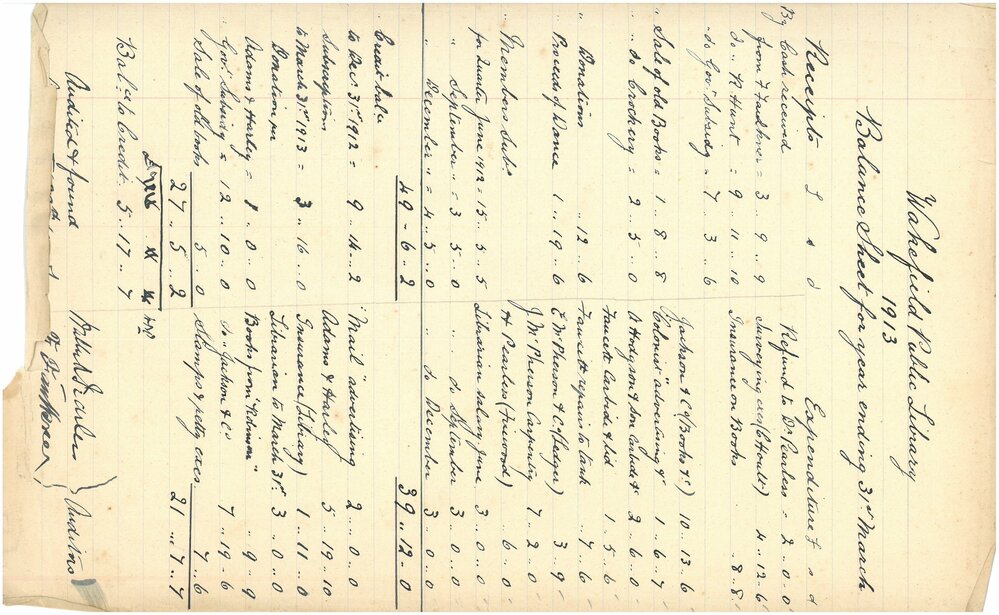 Wakefield Public Library
1913
Balance Sheet for year ending 31st March
Receipts £ s d
By Cash received
from F Faulkner = 3 .. 9 .. 9
do .. R Hunt = 9 .. 11 .. 10
do Gov Subsidy = 7 .. 3 .. 6
" Sale of old Books = 1 .. 8 .. 8
" .. do Crockery = 2 .. 5 .. 0
" Donations .. 12 .. 6
" Proceeds of Dance 1 .. 19 .. 6
Members Subs.
for Quarter June 1912 = 15 .. 5 .. 5
" September " = 3 .. 5 .. 0
" December " = 4 .. 5 .. 0
49 - 6 .. 2
Credit bale
to Dec. 31st 1912 = 9 .. 14 .. 2
Subscriptions
to March 31st 1913 = 3 .. 16 .. 0
Donation per
Adams & Harley = 1 .. 0 .. 0
Gov Subsidy = 12 .. 10 .. 0
Sale of old books 5 .. 0
27 .. 5 .. 2
Balce to Credit. 5 .. 17 .. 7
Audited & found
Expenditure £ s d
Refund to Dr Pearless = 2 .. 0 .. 0
Surveying
12 - 6
Insurance on Books .. 8 .. 8
Jackson & Co (Books &c) 10 .. 13 .. 6
"Colonist" advertising &c 1 .. 6 .. 7
A Hodgson & Son Carbide &c 2 .. 6 .. 0
Fawcett Carbide & Lid 1 .. 5 .. 6
Fawcett repairs to tank .. 7 .. 6
E McPherson & C 3 .. 9
J McPherson Carpentry 7 .. 2 .. 0
H Pearless (Firewood) 6 .. 0
Librarian salary June 3 .. 0 .. 0
" .. do September 3 .. 0 .. 0
" .. do December 3 .. 0 .. 0
39 .. 12 .. 0
"Mail" advertising 2 .. 0 .. 0
Adams & Harley 5 .. 19 .. 10
Insurance (Library) 1 .. 11 .. 0
Librarian to March 31st 3 .. 0 .. 0
Books from "Robinson" .. 9 .. 9
do .. Jackson & Co 7 .. 19 .. 6
Stamps & petty exes 7 .. 6
21 .. 7 .. 7
Auditors